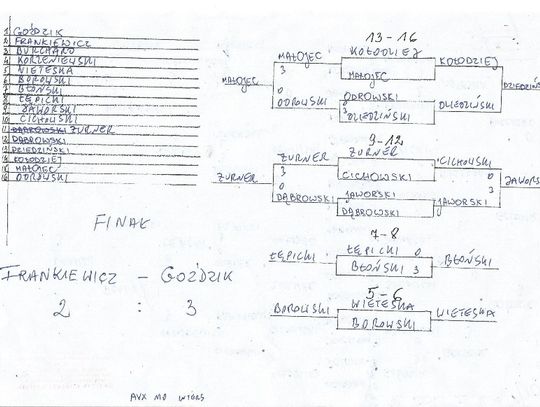 1 GOŹDZIK
2 FRANKIEWICZ
3 BURCHARD
4 KORZENIEWSKI
5 WIETESKA
6 BOROWSKI
7 BŁOŃSKI
8 ŁĘPICKI
9 JAWORSKI
10 CICHOWSKI
11 DĄBROWSKI ŻURNER
12 DĄBROWSKI
13 DZIEDZIŃSKI
14 KOŁODZIEJ
15 MAŁOJEC
16 ODROWSKI
FINAŁ
FRANKIEWICZ - GOŹDZIK
2 : 3
13-16
MAŁOJEC KOŁODZIEJ KOŁODZIEJ
3 MAŁOJEC
MAŁOJEC DZIEDZIŃS
0
ODROWSKI ODROWSKI DZIEDZIŃSKI
DZIEDZIŃSKI
9-12
ŻURNER ŻURNER CICHOWSKI
3 CICHOWSKI 0
ŻURNER 3 JAWORS
0
DĄBROWSKI JAWORSKI JAWORSKI
DĄBROWSKI
7-8
ŁĘPICKI ŁĘPICKI 0 BŁOŃSKI
BŁOŃSKI 3
5-6
BOROWSKI WIETESKA WIETESKA
BOROWSKI